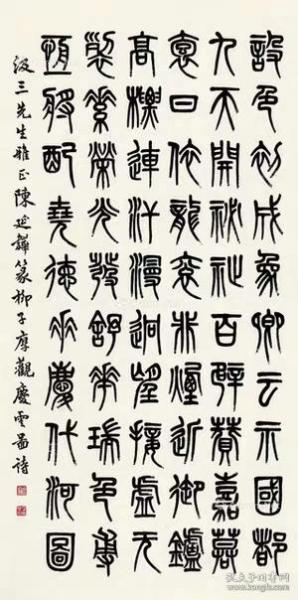 設色初成象卿云示國都
九天開祕祉百辟贊嘉謩
袌日依龍衮非煙近御鑪
高標連汗漫迥望接虛无
裂素榮光發舒華瑞色尃
恆將配堯德垂慶代河圖
級三先生雅正陳延韡篆柳子厚觀慶雲啚詩